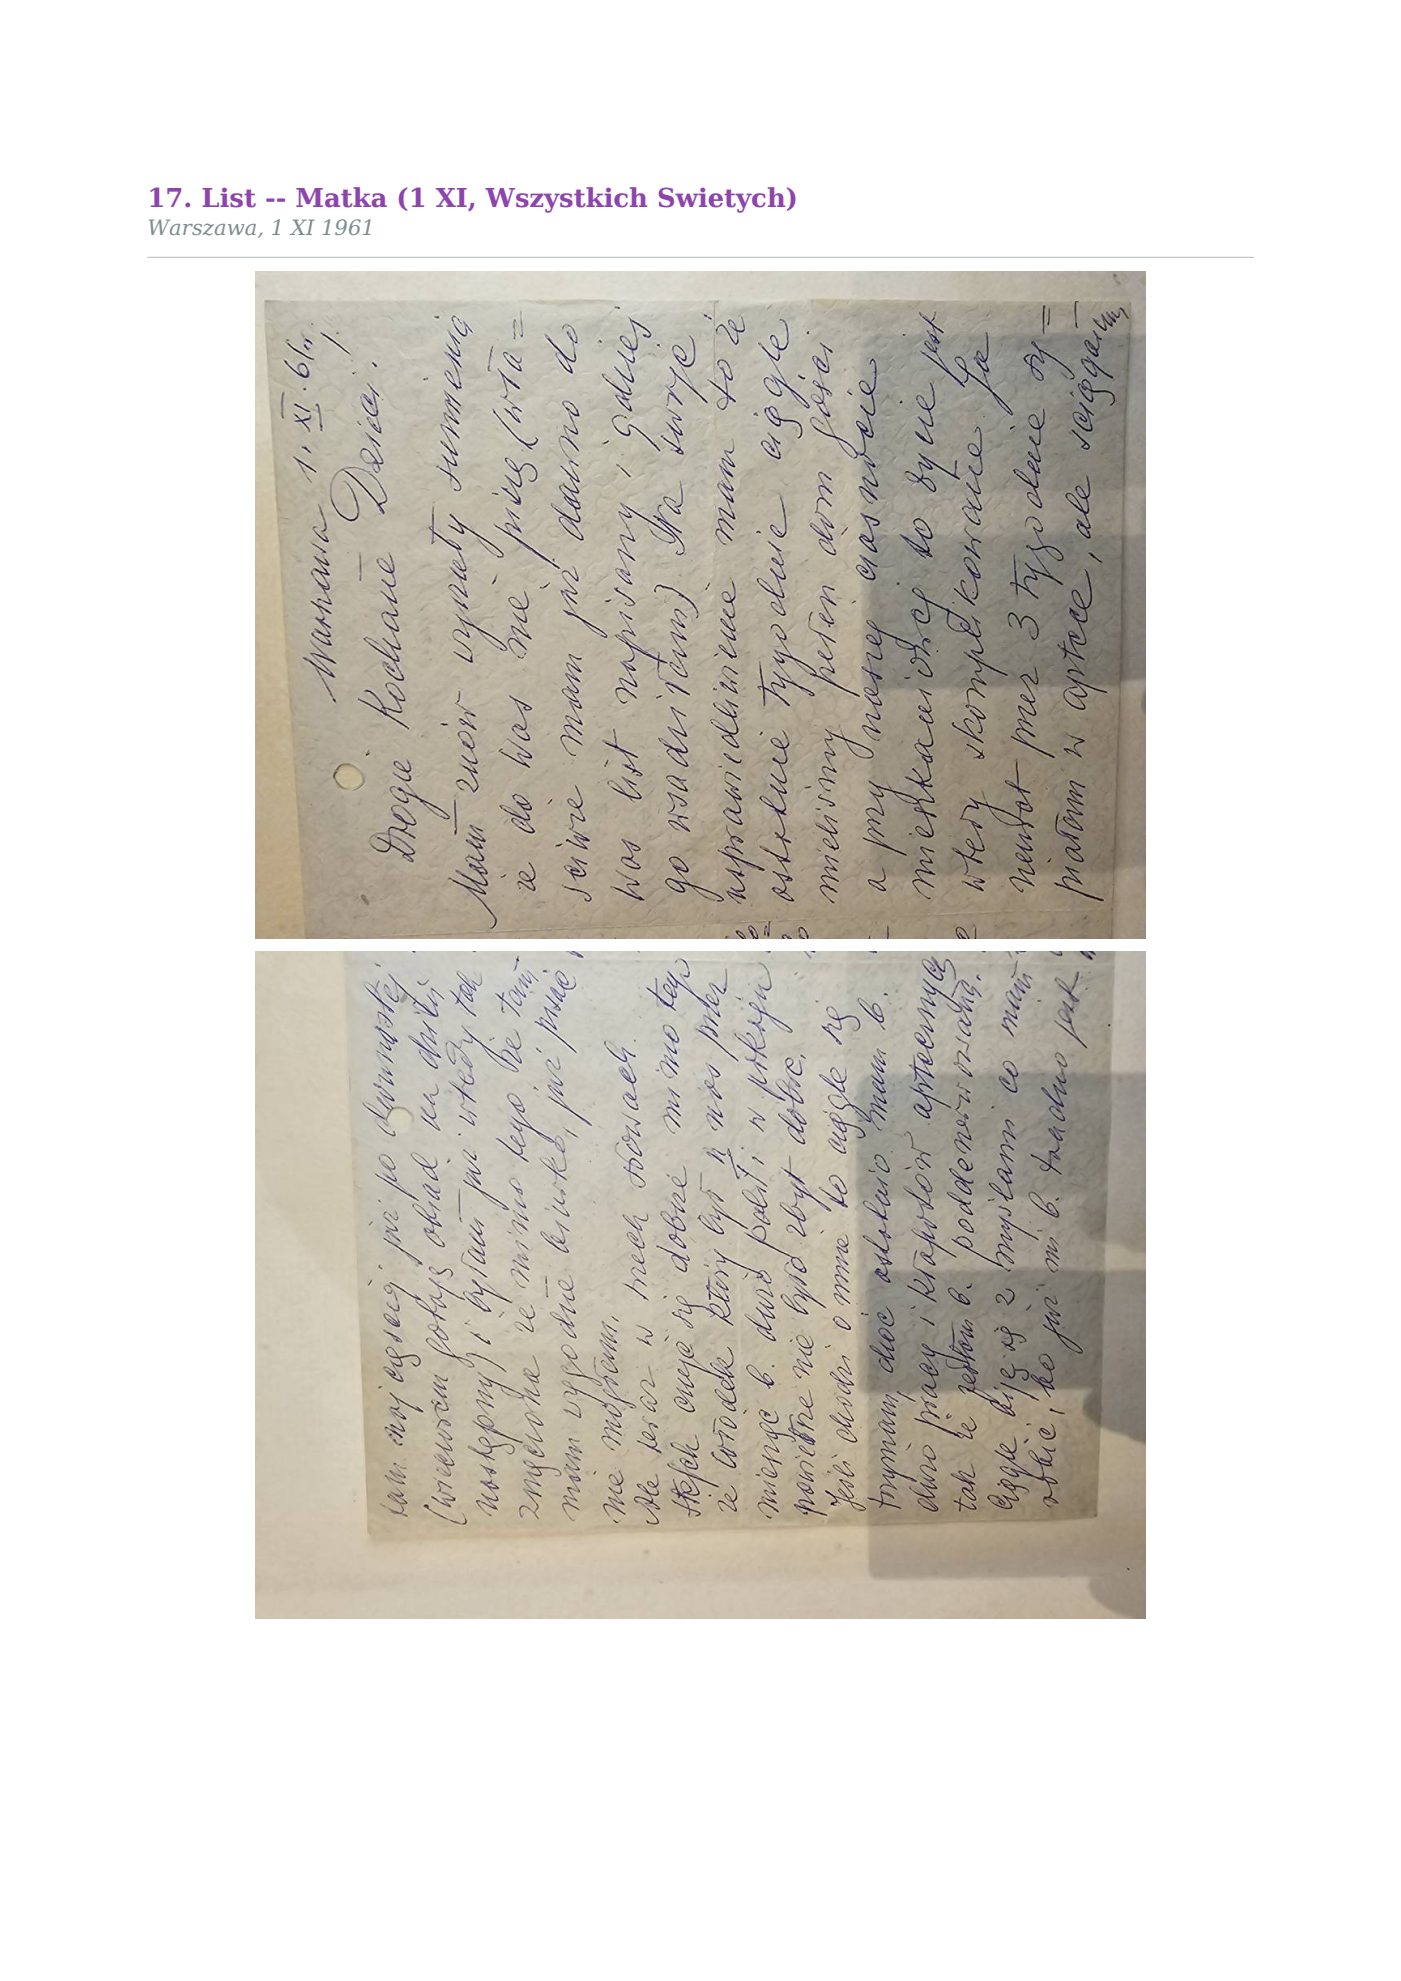 17. List -- Matka (1 XI, Wszystkich Swietych)
Warszawa, 1 XI 1961
Warszawa 1. XI. 61r.
Drogie Kochane Dzieci!
Mam znów wyrzuty sumienia
że do Was nie piszę (wła=
ściwie mam już dawno do
Was list napisany i gdzieś
go wsadziłam) Na swoje
usprawiedliwienie mam to że
ostatnie tygodnie ciągle
mieliśmy pełen dom gości
a przy naszej ciasnocie
mieszkaniowej to życie jest
wtedy skomplikowane Ja
przez 3 tygodnie dy=
żurowałam w aptece, ale
najczęściej już po
(wieczorem gotuję obiad na dzień
następny) i byłam już wtedy tak
zmęczona że mimo tego że tam
mam wygodne biurko, już pisać
nie mogłam.
Ale teraz w trzech słowach.
Stefek czuje się dobrze mimo tego
że Włodek który był u nas przez
miesiąc b. dużo palił i w pokoju
powietrze nie było zbyt dobre.
Jeśli chodzi o mnie to ciągle się
trzymam, choć ostatnio mam b.
dużo pracy i kłopotów aptecznych
tak że jestem b. podenerwowana.
Ciągle biję się z myślami co mam
robić, bo już mi b. trudno jest